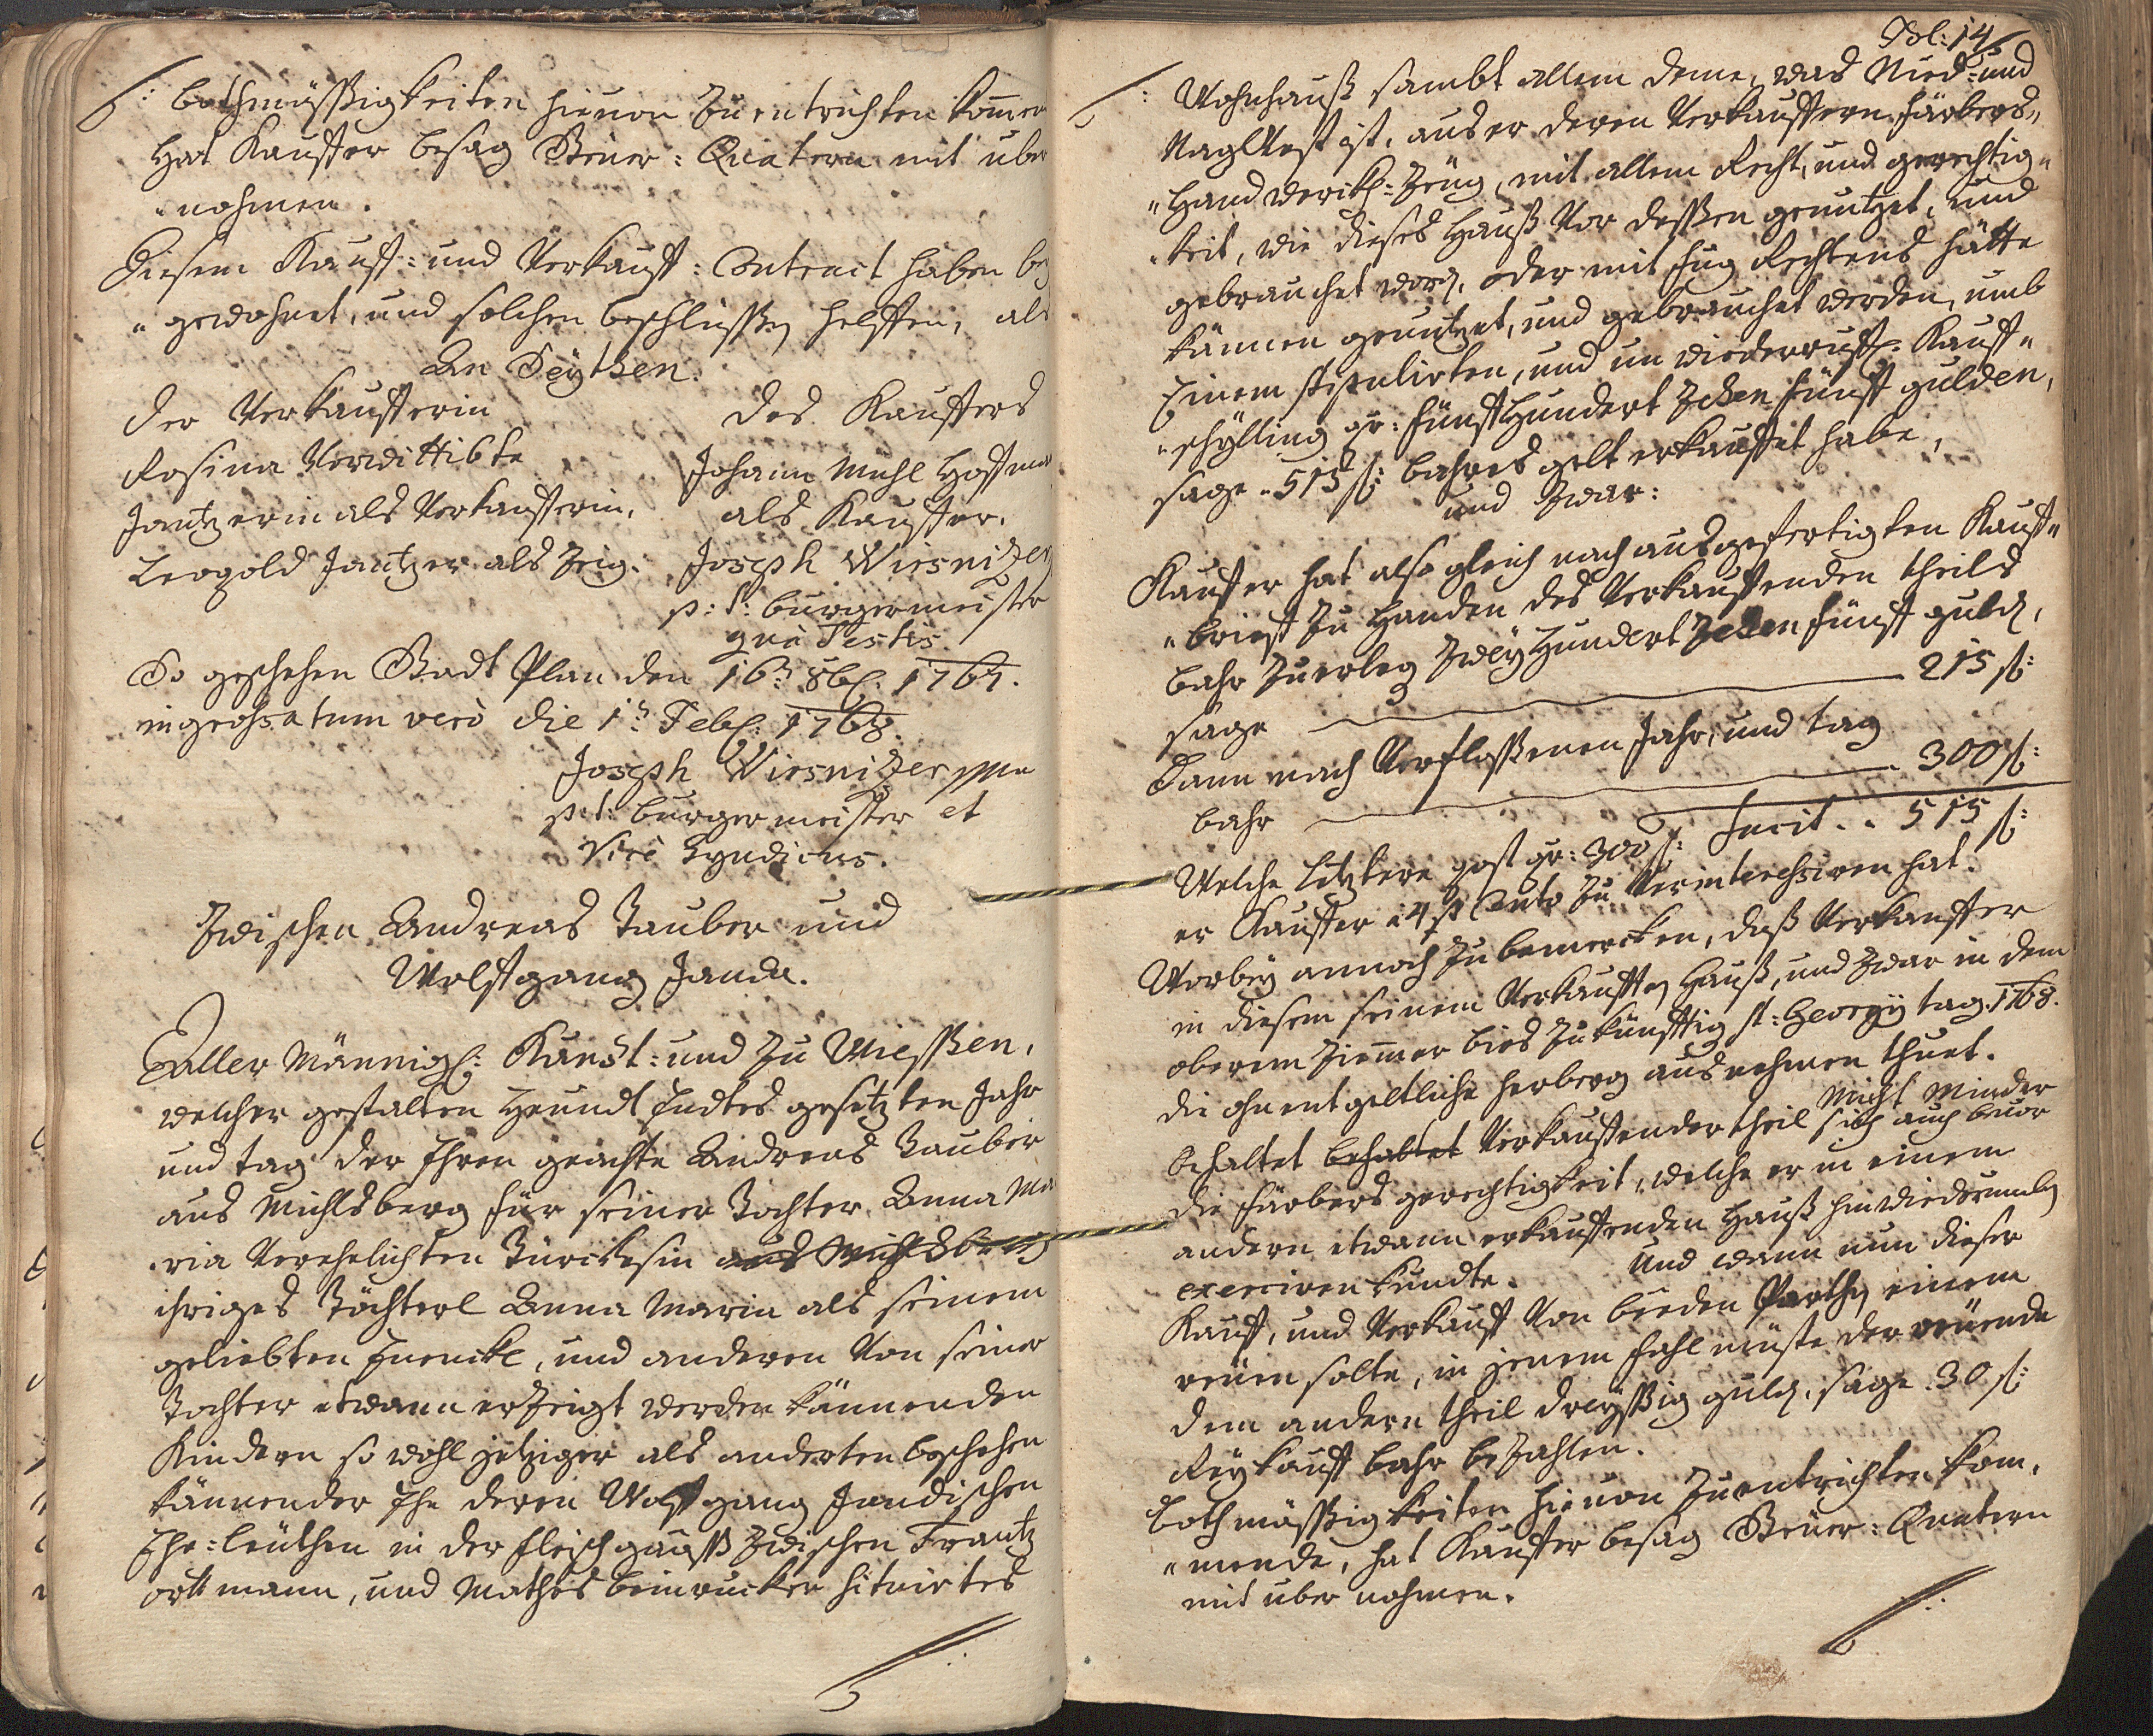 /: bothmässigkeiten hievon zu entrichten komen
Hat Kauffer besag Steuer: Quatern mit über
"nohmen.
Diesem Kauff: und Verkauff: Contract haben bey
"gewohnet, und solchen beschlüssen helffen, als
An Seythen.
der Verkaufferin
des Kauffers
Rosina Verwittibte
Johann Michl Hoffman
Jantzerin als Verkaufferin.
als Kauffer.
Leopold Jantzer als Zeig.
Joseph Wiesnitzer
p: t: burgermeister
quà Testis.
So geschehen Stadt Plan den 16t 8b. 1767.
ingrossatum verò die 1t Feb. 1768.
Joseph Wiesnitzer mpia
p: t: burgermeister et
Vice Syndicus.
Zwischen Andreas Tauber und
Wolffgang Janda.
Aller Männigl: Kundt: und zu Wiessen,
welcher gestalten Heundt Endtes gesetzten Jahr
und tag der Ehren geachte Andreas Tauber
aus Michlsberg für seiner Tochter Anna Ma
ria Verehelichten Türckesin aus Michlsberg
ihriges Töchterl Anna Maria als seinem
geliebten Enenckl, und anderen Von seiner
Tochter etwann erzeigt werden könnenden
Kindern so wohl jetziger als anderten beschehen
könnender Ehe deren Wolffgang Jandischen
Ehe=leüthen in der fleisch gaass zwischen Frantz
ortt mann, und Mathes beinrucker situirtes
Fol: 14
/: Wohnhauß sambt allem deme, was Nied= und
Naglvest ist, auser deren Verkauffern färbers"
"Handwerckh=Zeug, mit allem Recht, und gerechtig"
"keit, wie dieses Hauß Vor dessen genutzet, und
gebrauchet word. oder mit fug Rechtens hätte
können genutzet, und gebrauchet werden, umb
Einem stipulirten, und un wiederruffl. Kauff"
"schylling pr: fünffHundert Zehen fünff gulden,
sage . 515 f: bahres gelt erkauffet habe,
und zwar:
Kauffer hat also gleich nach ausgefertigten Kauff"
"brieff zu Handen des Verkauffenden theils
bahr zu erleg zweyHundert Zehen fünff guld,
sage 215 f:
Dann nach Verflossenen Jahr, und tag
bahr 300 f:
facit . . 515 f:
Welche letztere post pr: 300 f:
er Kauffer à 4 p Cento zu Verinteressiren hat.
Worbey annoch zu bemercken, daß Verkauffer
in diesem seinem Verkaufften Hauß, und zwar in dem
oberem Ziemmer bies zukünfftig st: Georgy tag. 1768.
die ohnentgeltliche herberg ausnehmen thuet.
Nicht Minder
behaltet behaltet Verkauffender theil sich auch bevor
die färbers gerechtigkeit, welche er in einem
andern etwann erkauffenden Hauß hinwiederumben
exerciren kundte. Und wann nun dieser
Kauff, und Verkauff Von beeden Parthen einem
reüen solte, in jenem fahl müste der reüende
dem andern theil dreyssig guld. sage . 30 f:
Reykauff bahr bezahlen.
bothmässigkeiten hievon zu entrichten kom"
"mende, hat Kauffer besag Steuer: Quatern
mit über nohmen.